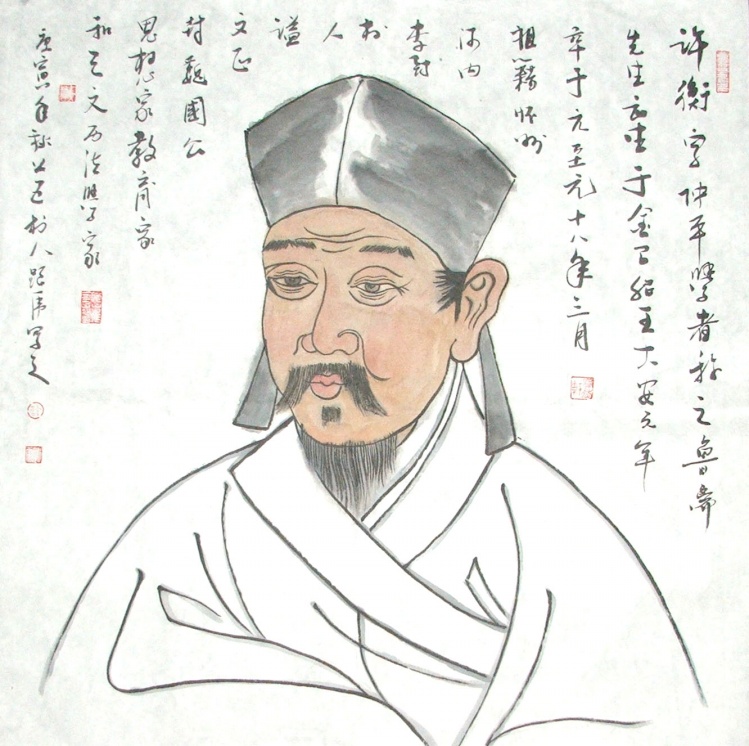 许衡字仲平學者称之魯斋
先生生于金卫绍王大安元年
卒于元至元十八年三月
祖籍怀州
河内
李封
村
人
谥
文正
封魏國公
思想家教育家
和天文历法學家
庚寅年秋村人写之